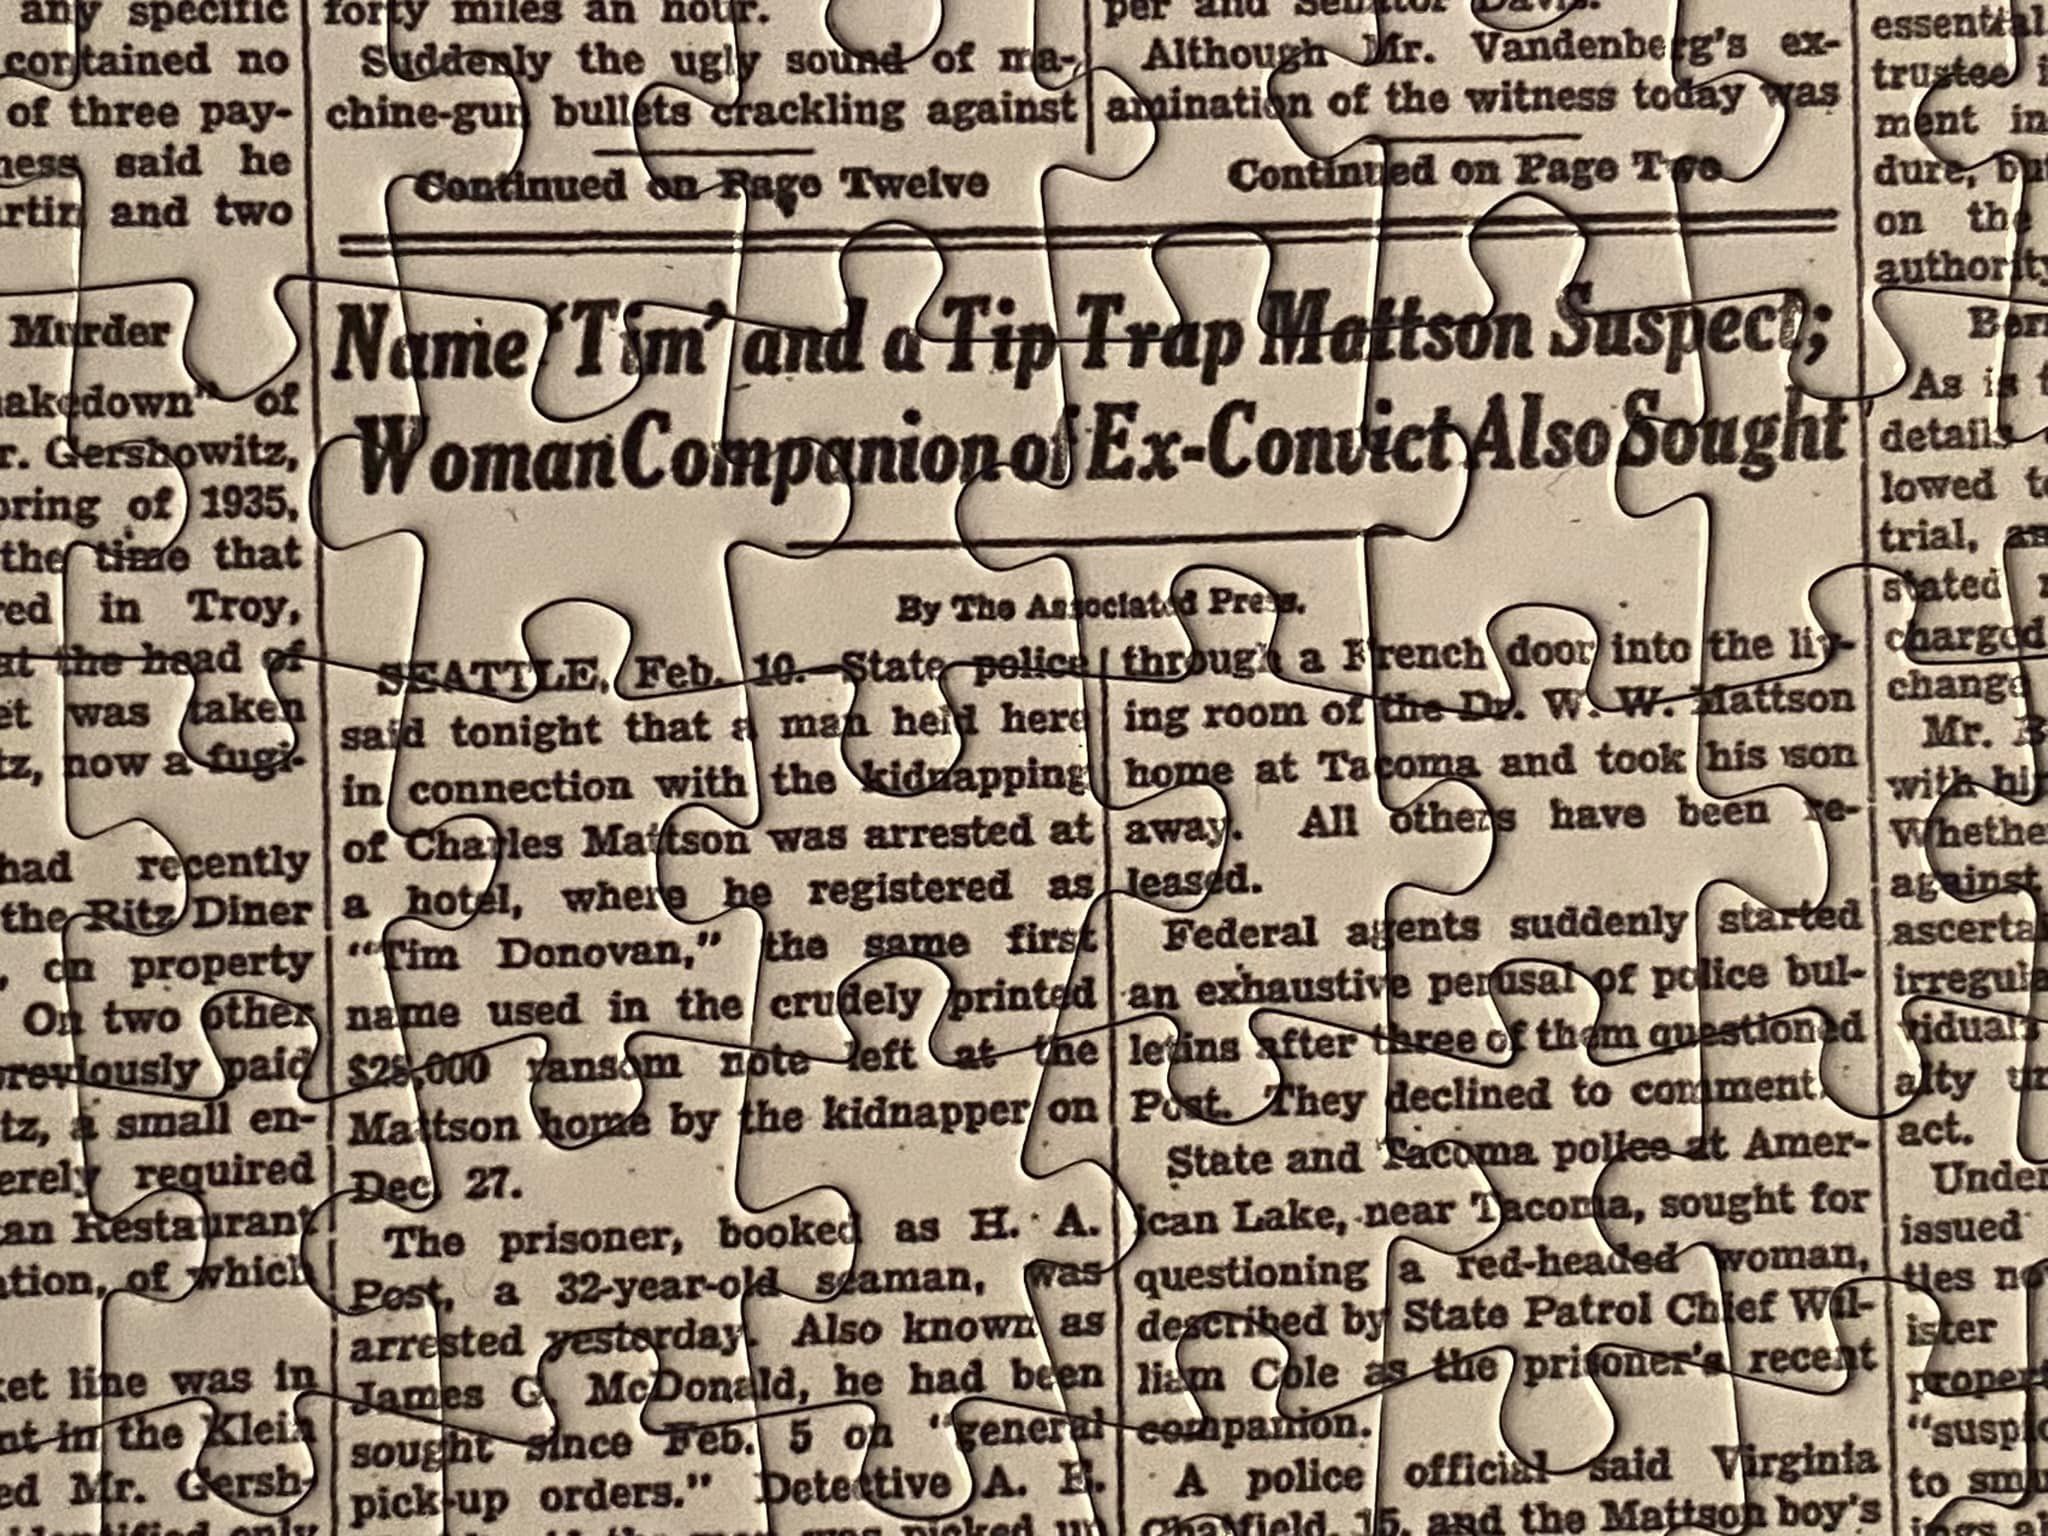 any specific
contained no
of three pay-
said he
and two
Murder
of
Gershowitz,
of 1935,
the time that
in Troy,
at the head of
was taken
now a fugi-
had recently
the Ritz Diner
on property
On two other
previously paid
a small en-
required
Restaurant
of which
line was in
in the Klein
Mr. Gersh-
forty miles an hour.
Suddenly the ugly sound of ma-
chine-gun bullets crackling against
Continued on Page Twelve
per and Senator Davis.
Although Mr. Vandenberg's ex-
amination of the witness today was
Continued on Page Two
Name 'Tim' and a Tip Trap Mattson Suspect;
Woman Companion of Ex-Convict Also Sought
By The Associated Press.
SEATTLE, Feb. 10.—State police
said tonight that a man held here
in connection with the kidnapping
of Charles Mattson was arrested at
a hotel, where he registered as
"Tim Donovan," the same first
name used in the crudely printed
$28,000 ransom note left at the
Mattson home by the kidnapper on
Dec. 27.
The prisoner, booked as H. A.
Post, a 32-year-old seaman, was
arrested yesterday. Also known as
James G. McDonald, he had been
sought since Feb. 5 on "general
pick-up orders." Detective A. E.
picked up
through a French door into the liv-
ing room of the Dr. W. W. Mattson
home at Tacoma and took his son
away. All others have been re-
leased.
Federal agents suddenly started
an exhaustive perusal of police bul-
letins after three of them questioned
Post. They declined to comment.
State and Tacoma police at Amer-
ican Lake, near Tacoma, sought for
questioning a red-headed woman,
described by State Patrol Chief Wil-
liam Cole as the prisoner's recent
companion.
A police official said Virginia
Chatfield, 15, and the Mattson boy's
essential
trustee
ment in
dure, but
on the
authority
As is
details
lowed
trial,
stated
charged
change
Mr.
with
Whether
against
act.
Under
issued
ties
ister
to